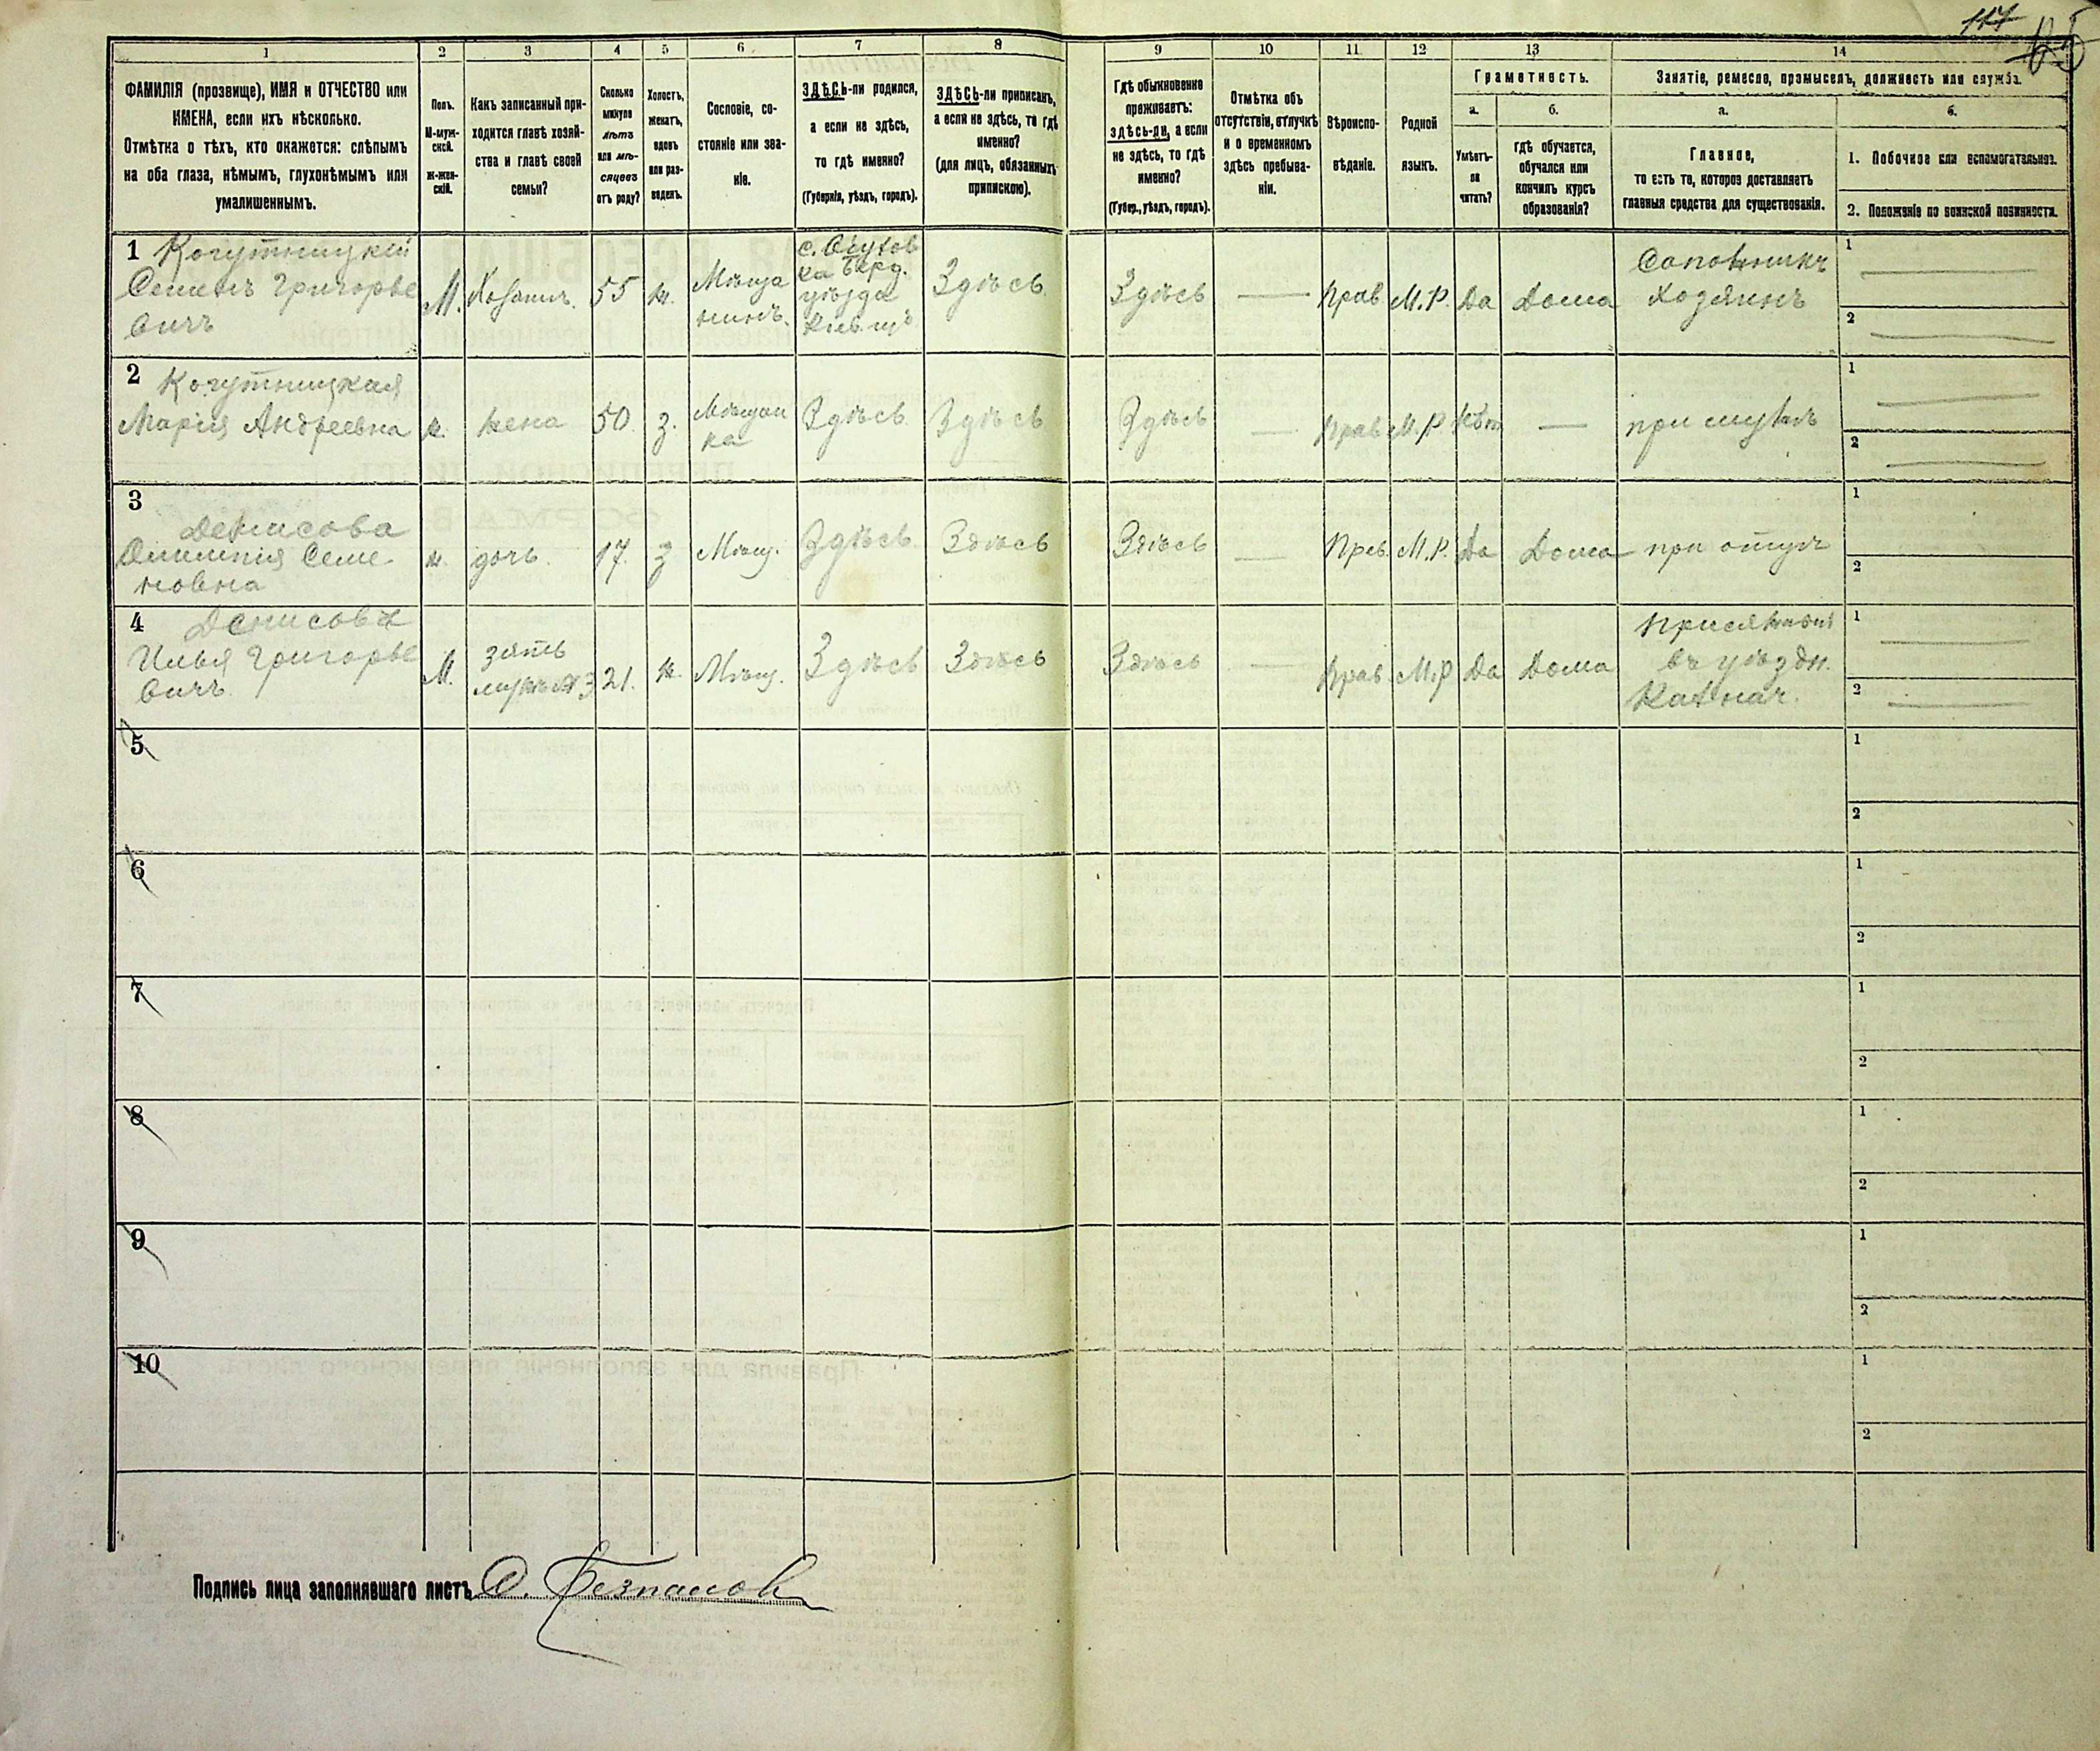 117
1 2 3 4 5 6 7 8 9 10 11 12 13 14
ФАМИЛІЯ (прозвище), ИМЯ и ОТЧЕСТВО или
ИМЕНА, если ихъ нѣсколько.
Отмѣтка о тѣхъ, кто окажется: слѣпымъ
на оба глаза, нѣмымъ, глухонѣмымъ или
умалишеннымъ.
Полъ.
М-муж-
ской.
ж-жен-
скій.
Какъ записанный при-
ходится главѣ хозяй-
ства и главѣ своей
семьи?
Сколько
минуло
лѣтъ
или мѣ-
сяцевъ
отъ роду?
Холостъ,
женатъ,
вдовъ
или раз-
веденъ.
Сословіе, со-
стояніе или зва-
ніе.
ЗДѢСЬ-ли родился,
а если не здѣсь,
то гдѣ именно?
(Губернія, уѣздъ, городъ).
ЗДѢСЬ-ли приписанъ,
а если не здѣсь, то гдѣ
именно?
(для лицъ, обязанныхъ
припискою).
Гдѣ обыкновенно
проживаетъ:
здѣсь-ли, а если
не здѣсь, то гдѣ
именно?
(Губер., уѣздъ, городъ).
Отмѣтка объ
отсутствіи, отлучкѣ
и о временномъ
здѣсь пребыва-
ніи.
Вѣроиспо-
вѣданіе.
Родной
языкъ.
Грамотность.
а.
Умѣетъ-
ли
читать?
б.
гдѣ обучается,
обучался или
кончилъ курсъ
образованія?
Занятіе, ремесло, промыселъ, должность или служба.
а.
Главное,
то есть то, которое доставляетъ
главныя средства для существованія.
б.
1. Побочное или вспомогательное.
2. Положеніе по воинской повинности.
1 Когутницкій
Семенъ Григорье
вичъ
М.
Хозяинъ.
55
ж.
Мѣща
нинъ.
с.
ка Берд.
уѣзда
Кіев. г.
Здѣсь
Здѣсь
Прав
М.Р.
Да
Дома
Сапожникъ
Хозяинъ
1
2
2 Когутницкая
Марія Андреевна
ж.
жена
50
з.
Мѣщан
ка
Здѣсь
Здѣсь
Здѣсь
Прав
М.Р
Нѣт
при мужѣ
1
2
3
Денисова
Олимпія Семе-
новна
ж.
дочь
17.
з
Мѣщ.
Здѣсь
Здѣсь
Здѣсь
Прав.
М.Р.
Да
Дома
при отцѣ
1
2
4 Денисовъ
Илья Григорье
вичъ
М.
зять
мужъ № 3
21.
ж.
Мѣщ.
Здѣсь
Здѣсь
Здѣсь
Прав
М.Р
Да
Дома
Присяжный
въ уѣздн.
Казнач.
1
2
5
1
2
6
1
2
7
1
2
8
1
2
9
1
2
10
1
2
Подпись лица заполнявшаго листъ